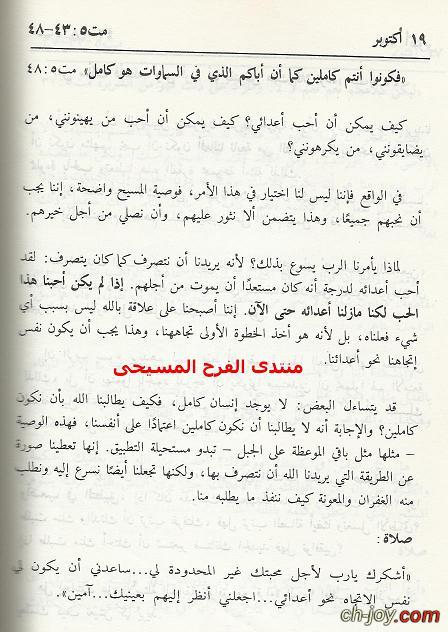 ١٩ أكتوبر
مت٥: ٤٣-٤٨
«فكونوا أنتم كاملين كما أن أباكم الذي في السماوات هو كامل» مت٥: ٤٨
كيف يمكن أن أحب أعدائي؟ كيف يمكن أن أحب من يهينونني، من
يضايقونني، من يكرهونني؟
في الواقع فإننا ليس لنا اختيار في هذا الأمر، فوصية المسيح واضحة، إننا يجب
أن نحبهم جميعًا، وهذا يتضمن ألا نثور عليهم، وأن نصلي من أجل خيرهم.
لماذا يأمرنا الرب يسوع بذلك؟ لأنه يريدنا أن نتصرف كما كان يتصرف: لقد
أحب أعدائه لدرجة أنه كان مستعدًا أن يموت من أجلهم. إذا لم يكن أحبنا هذا
الحب لكنا مازلنا أعدائه حتى الآن. إننا أصبحنا على علاقة بالله ليس بسبب أي
شيء فعلناه، بل لأنه هو أخذ الخطوة الأولى تجاهنا، وهذا يجب أن يكون نفس
إتجاهنا نحو أعدائنا.
منتدى الفرح المسيحى
قد يتساءل البعض: لا يوجد إنسان كامل، فكيف يطالبنا الله بأن نكون
كاملين؟ والإجابة أنه لا يطالبنا أن نكون كاملين اعتمادًا على أنفسنا، فهذه الوصية
– مثلها مثل باقي الموعظة على الجبل – تبدو مستحيلة التطبيق. إنها تعطينا صورة
عن الطريقة التي يريدنا الله أن نتصرف بها، ولكنها تجعلنا أيضًا نسرع إليه ونطلب
منه الغفران والمعونة كيف ننفذ ما يطلبه منا.
صلاة:
«أشكرك يارب لأجل محبتك غير المحدودة لي...ساعدني أن يكون لي
نفس الاتجاه نحو أعدائي...اجعلني أنظر إليهم بعينيك...آمين».
ch-joy.com